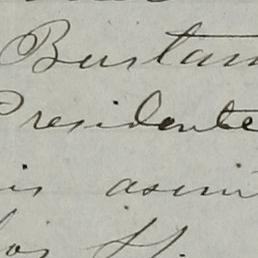 Bustam
Presidente
is asim
los H.